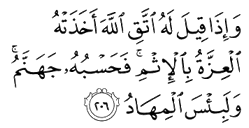 وَإِذَا قِيلَ لَهُ ٱتَّقِ ٱللَّهَ أَخَذَتْهُ
ٱلْعِزَّةُ بِٱلْإِثْمِ ۚ فَحَسْبُهُۥ جَهَنَّمُ ۚ
وَلَبِئْسَ ٱلْمِهَادُ ٢٠٦